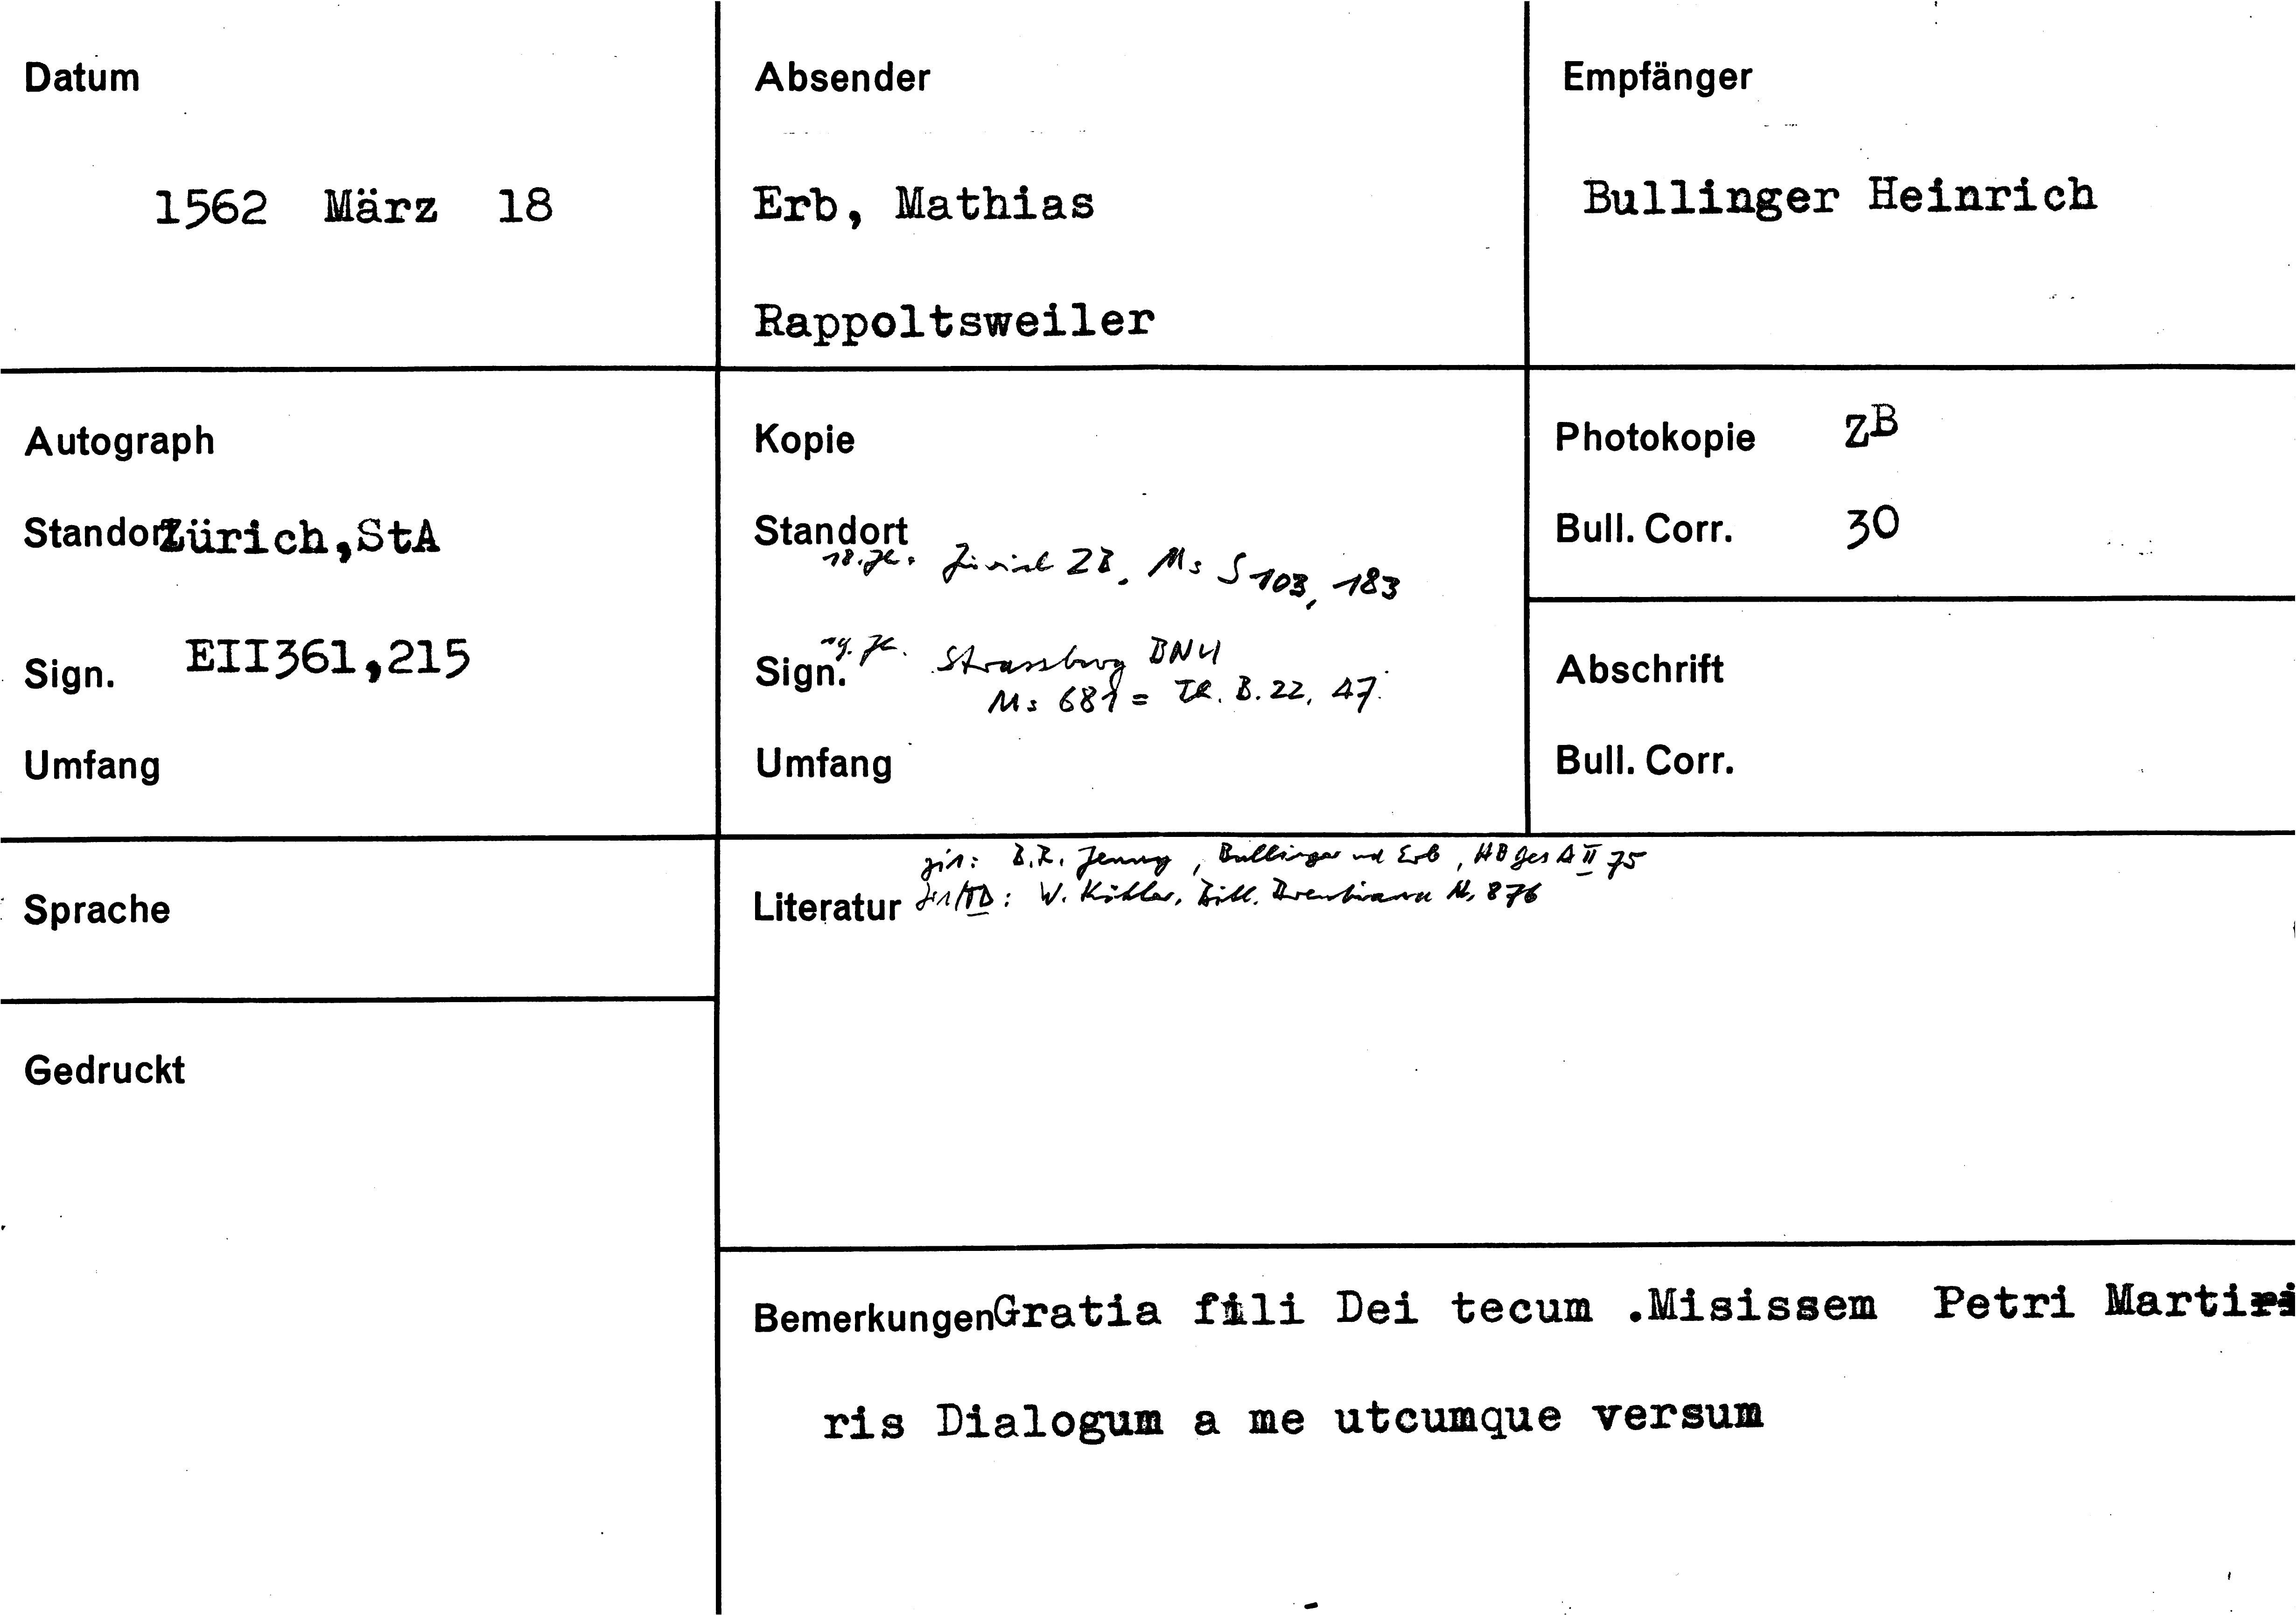 Datum
1562 März 18
Absender
Erb, Mathias
Rappoltsweiler
Empfänger
Bullinger Heinrich
Autograph
Standort Zürich,StA
Sign. EII361,215
Umfang
Kopie
Standort
18. Jh. Zürich ZB, Ms S 103, 183
Sign. 19. Jh. Strassburg BNU
Ms 681 = Th. B. 22, 47.
Umfang
Photokopie ZB
Bull. Corr. 30
Abschrift
Bull. Corr.
Sprache
Gedruckt
zit: B.R. Jenny, Bullinger und Erb, HB Ges A II 75
Literatur W. Köhler, Bibl. Brentiana Nr. 876
Bemerkungen Gratia fili Dei tecum .Misissem Petri Marti
ris Dialogum a me utcumque versum